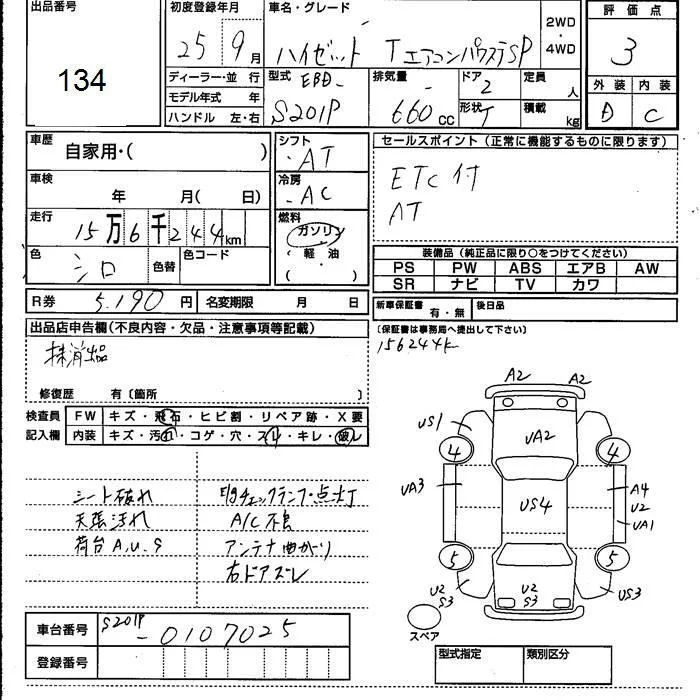 出品番号
134
初度登録年月
25 9月
ディーラー・並 行
モデル年式 年
ハンドル 左・右
車名・グレード
ハイゼット TエアコンパワステSP
2WD
・
4WD
型式 EBD-
S201P
排気量
660 cc
ドア 2
形状 T
定員 人
積載 kg
評価点
3
外装 内装
D C
車歴
自家用・( )
車検
年 月( 日)
走行
15万6千244km
色
シロ
色替
色コード
シフト
AT
冷房
AC
燃料
ガソリン
(軽 油)
( )
セールスポイント(正常に機能するものに限ります)
ETC付
AT
装備品(純正品に限り○をつけてください)
PS PW ABS エアB AW
SR ナビ TV カワ
R券 5,190円 名変期限 月 日
新車保証書 有・無
後日品
(保証書は事務局へ提出して下さい)
156244k
出品店申告欄(不良内容・欠品・注意事項等記載)
抹消出品
修復歴 有〔箇所 〕
検査員
記入欄
FW キズ・飛石・ヒビ割・リペア跡・X要
内装 キズ・汚れ・コゲ・穴・スレ・キレ・破レ
シート破れ
天張汚れ
荷台A,U,S
E/gチェックランプ点灯
A/C不良
アンテナ曲がり
右ドアズレ
A2 A2
US1
4 4
UA2
UA3
US4
A4
U2
UA1
5 5
U2
S3
U2
S3
US3
スペア
車台番号 S201P
-0107025
登録番号
型式指定 類別区分